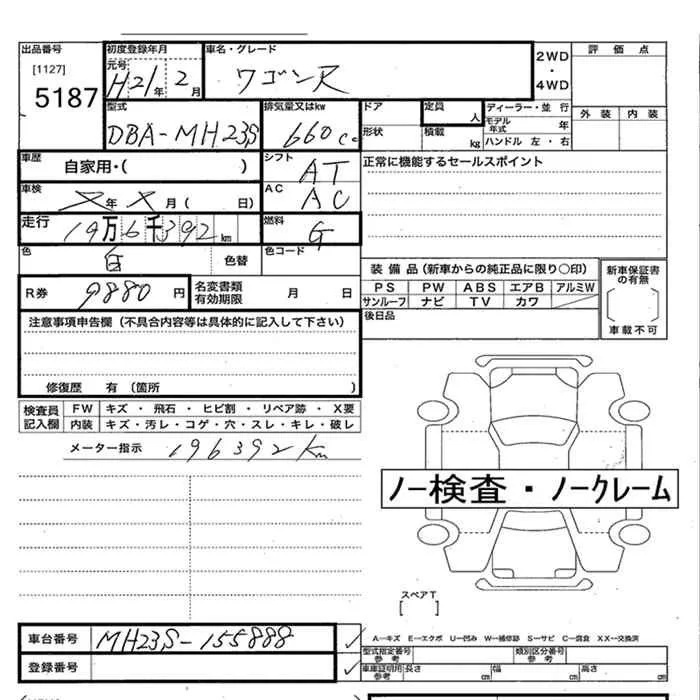 出品番号 初度登録年月 車名・グレード 2WD・4WD 評価点
[1127] 元号 H21年 2月 ワゴンR
5187 外装 内装
型式 排気量又はkw ドア 定員 人 ディーラー・並行
DBA-MH23S 660cc 形状 積載 kg モデル年式 年
ハンドル 左・右
車歴 自家用・( ) シフト AT 正常に機能するセールスポイント
車検 年 月 ( 日) AC AC
走行 19万6千392km 燃料 G
色 白 色替 色コード
装備品(新車からの純正品に限り○印) 新車保証書の有無
R券 9880円 名変書類有効期限 月 日 PS PW ABS エアB アルミW
サンルーフ ナビ TV カワ
車載不可
注意事項申告欄(不具合内容等は具体的に記入して下さい) 後日品
修復歴 有(箇所 )
検査員記入欄 FW キズ・飛石・ヒビ割・リペア跡・X要
内装 キズ・汚レ・コゲ・穴・スレ・キレ・破レ
メーター指示 196392km
ノー検査・ノークレーム
スペアT
[ ]
車台番号 MH23S-155888 A―キズ E―エクボ U―凹み W―補修跡 S―サビ C―腐食 XX―交換済
型式指定番号参考 類別区分番号参考
登録番号 車庫証明用参考 長さ cm 幅 cm 高さ cm